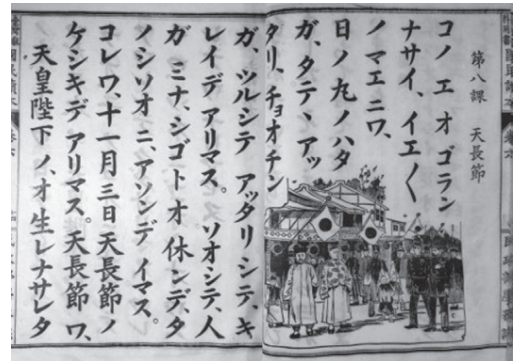 第八課 天長節
コノ エ オ ゴラン
ナサイ、イエ〱
ノ マエニワ、
日ノ丸ノ ハタ
ガ、タテヽ アッ
タリ、チョオチン
ガ、ツルシテ アッタリ シテ、キ
レイデ アリマス。ソオシテ、人
ガ ミナ、シゴト オ 休ンデ、タ
ノシソオ ニ、アソンデ イマス。
コレワ、十一月三日 天長節ノ
ケシキデ アリマス。天長節 ワ、
天皇陛下ノ、オ生レナサレタ